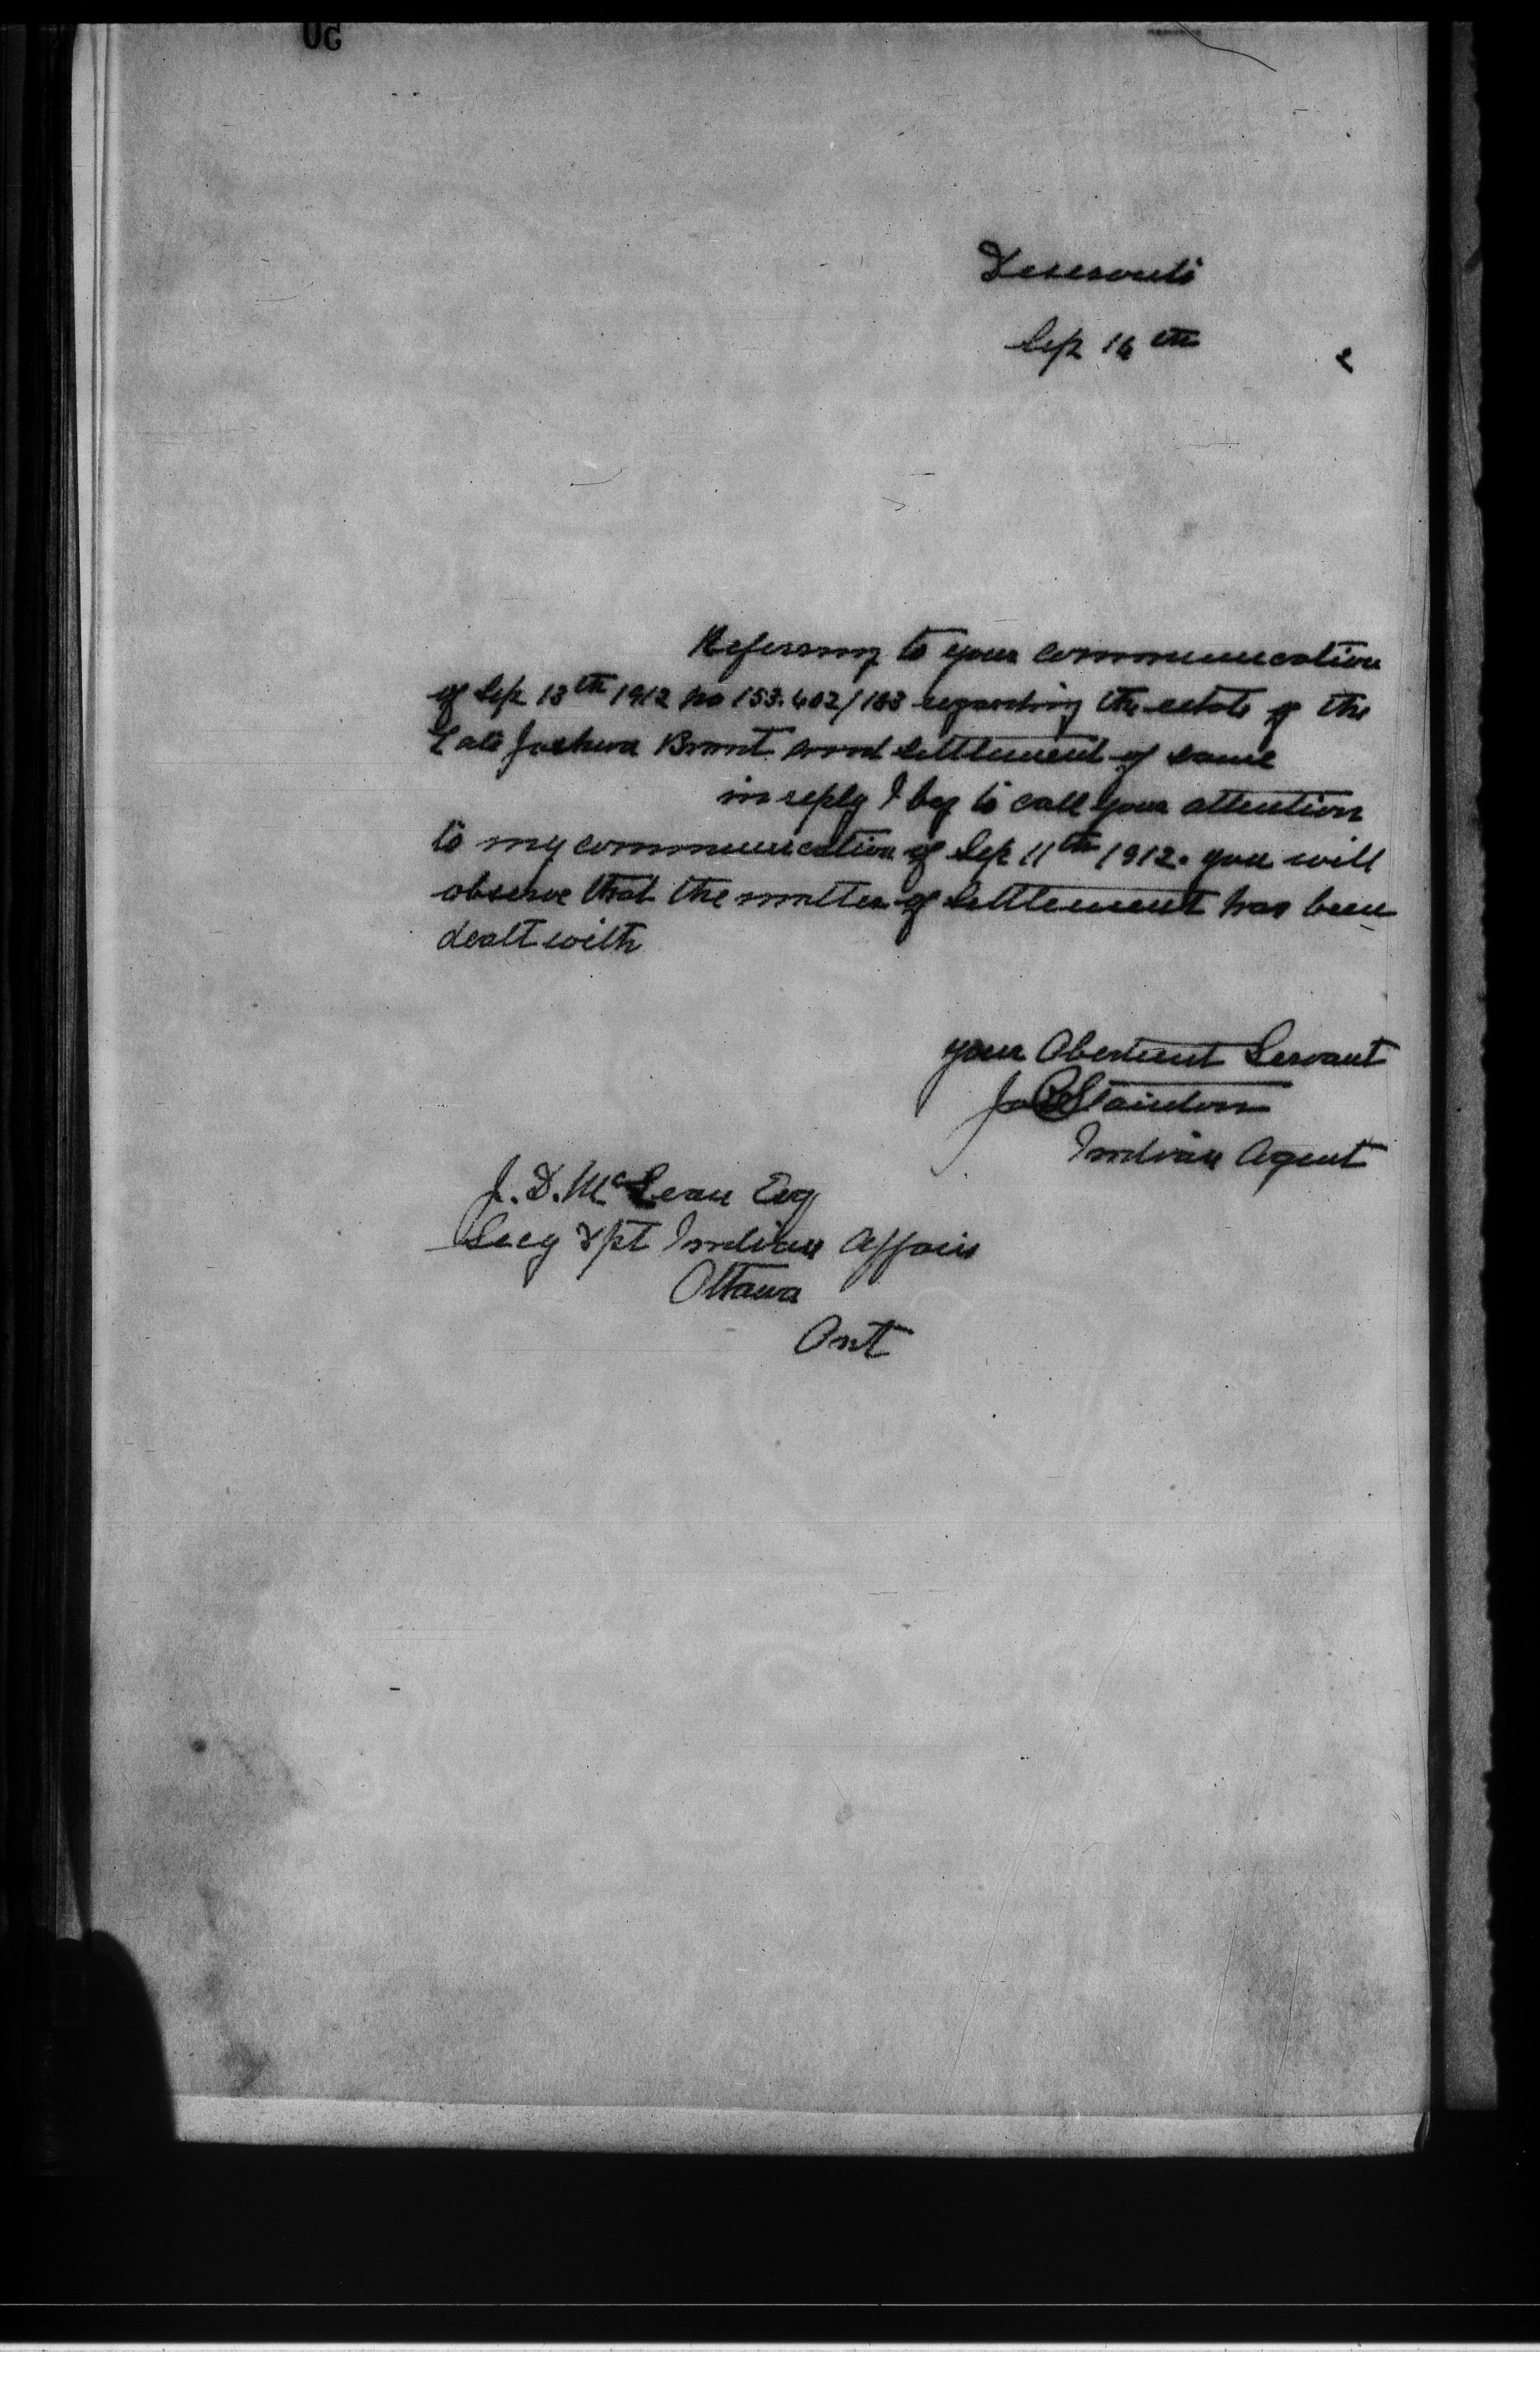 Deseronto
Sep 16th 2
Referring to your communication
of Sep 13th 1912 no 153.402/183 regarding the estate of the
Late Joshua Brant and settlement of same
in reply I beg to call your attention
to my communication of Sep 11th 1912. you will
observe that the matter of settlement has been
dealt with
your Obedient Servant
Stainton
Indian Agent
J. D. McLean Esq
Secy Dpt Indian Affairs
Ottawa
Ont